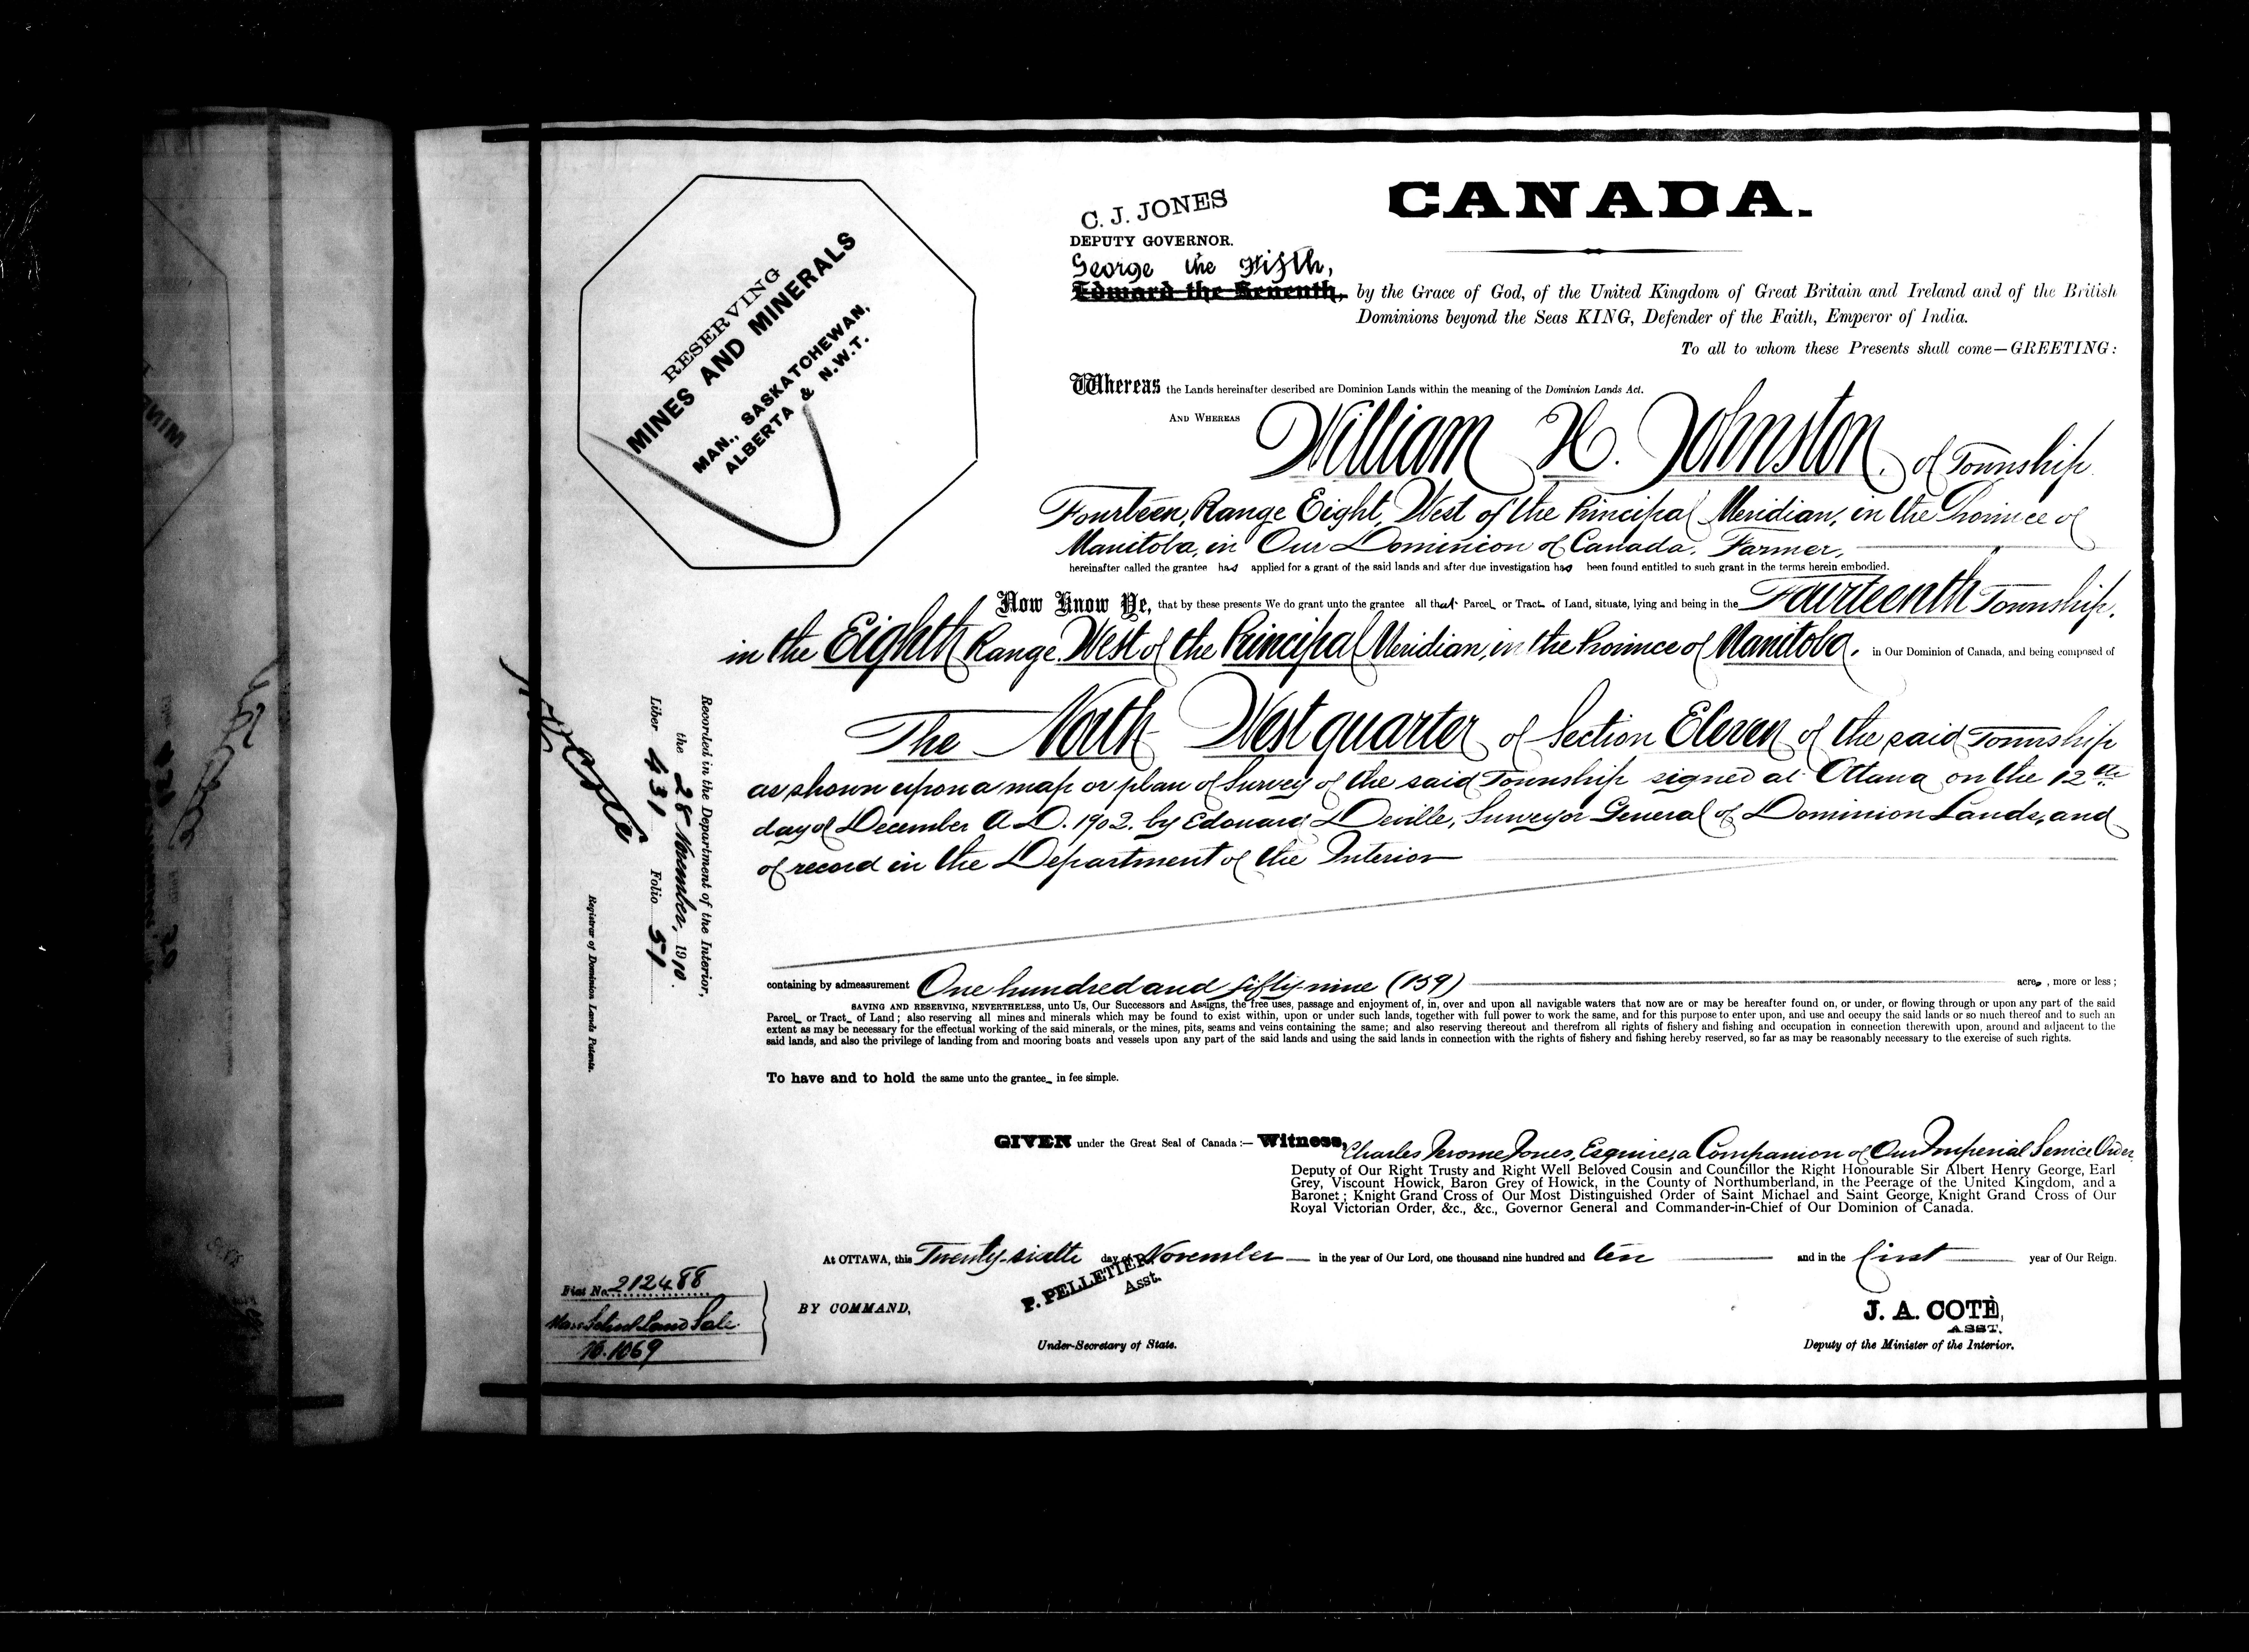 CANADA.
C. J. JONES
DEPUTY GOVERNOR.
George the Fifth,
Edward the Seventh, by the Grace of God, of the United Kingdom of Great Britain and Ireland and of the British
Dominions beyond the Seas KING, Defender of the Faith, Emperor of India.
To all to whom these Presents shall come—GREETING:
RESERVING
MINES AND MINERALS
MAN., SASKATCHEWAN,
ALBERTA & N.W.T.
Whereas the Lands hereinafter described are Dominion Lands within the meaning of the Dominion Lands Act.
AND WHEREAS William H. Johnston, of Township
Fourteen, Range Eight, West of the Principal Meridian, in the Province of
Manitoba, in Our Dominion of Canada, Farmer,
hereinafter called the grantee has applied for a grant of the said lands and after due investigation has been found entitled to such grant in the terms herein embodied.
Now Know Ye, that by these presents We do grant unto the grantee all that Parcel or Tract of Land, situate, lying and being in the Fourteenth Township,
in the Eighth Range, West of the Principal Meridian, in the Province of Manitoba, in Our Dominion of Canada, and being composed of
The North West quarter of Section Eleven of the said Township
as shown upon a map or plan of Survey of the said Township signed at Ottawa on the 12th
day of December A.D. 1902. by Edouard Deville, Surveyor General of Dominion Lands, and
of record in the Department of the Interior
containing by admeasurement One hundred and fifty-nine (159) acres, more or less;
SAVING AND RESERVING, NEVERTHELESS, unto Us, Our Successors and Assigns, the free uses, passage and enjoyment of, in, over and upon all navigable waters that now are or may be hereafter found on, or under, or flowing through or upon any part of the said
Parcel or Tract of Land; also reserving all mines and minerals which may be found to exist within, upon or under such lands, together with full power to work the same, and for this purpose to enter upon, and use and occupy the said lands or so much thereof and to such an
extent as may be necessary for the effectual working of the said minerals, or the mines, pits, seams and veins containing the same; and also reserving thereout and therefrom all rights of fishery and fishing and occupation in connection therewith upon, around and adjacent to the
said lands, and also the privilege of landing from and mooring boats and vessels upon any part of the said lands and using the said lands in connection with the rights of fishery and fishing hereby reserved, so far as may be reasonably necessary to the exercise of such rights.
To have and to hold the same unto the grantee in fee simple.
GIVEN under the Great Seal of Canada:— Witness, Charles Jerome Jones, Esquire, a Companion of Our Imperial Service Order
Deputy of Our Right Trusty and Right Well Beloved Cousin and Councillor the Right Honourable Sir Albert Henry George, Earl
Grey, Viscount Howick, Baron Grey of Howick, in the County of Northumberland, in the Peerage of the United Kingdom, and a
Baronet; Knight Grand Cross of Our Most Distinguished Order of Saint Michael and Saint George, Knight Grand Cross of Our
Royal Victorian Order, &c., &c., Governor General and Commander-in-Chief of Our Dominion of Canada.
At OTTAWA, this Twenty-sixth day of November in the year of Our Lord, one thousand nine hundred and ten and in the first year of Our Reign.
BY COMMAND,
P. PELLETIER,
Asst.
Under-Secretary of State.
J. A. COTÈ,
ASST.
Deputy of the Minister of the Interior.
Recorded in the Department of the Interior,
the 28 November, 1910.
Liber 431 Folio 51
Registrar of Dominion Lands Patents.
Fiat No. 212488
Man. School Land Sale
No. 1069
MINE